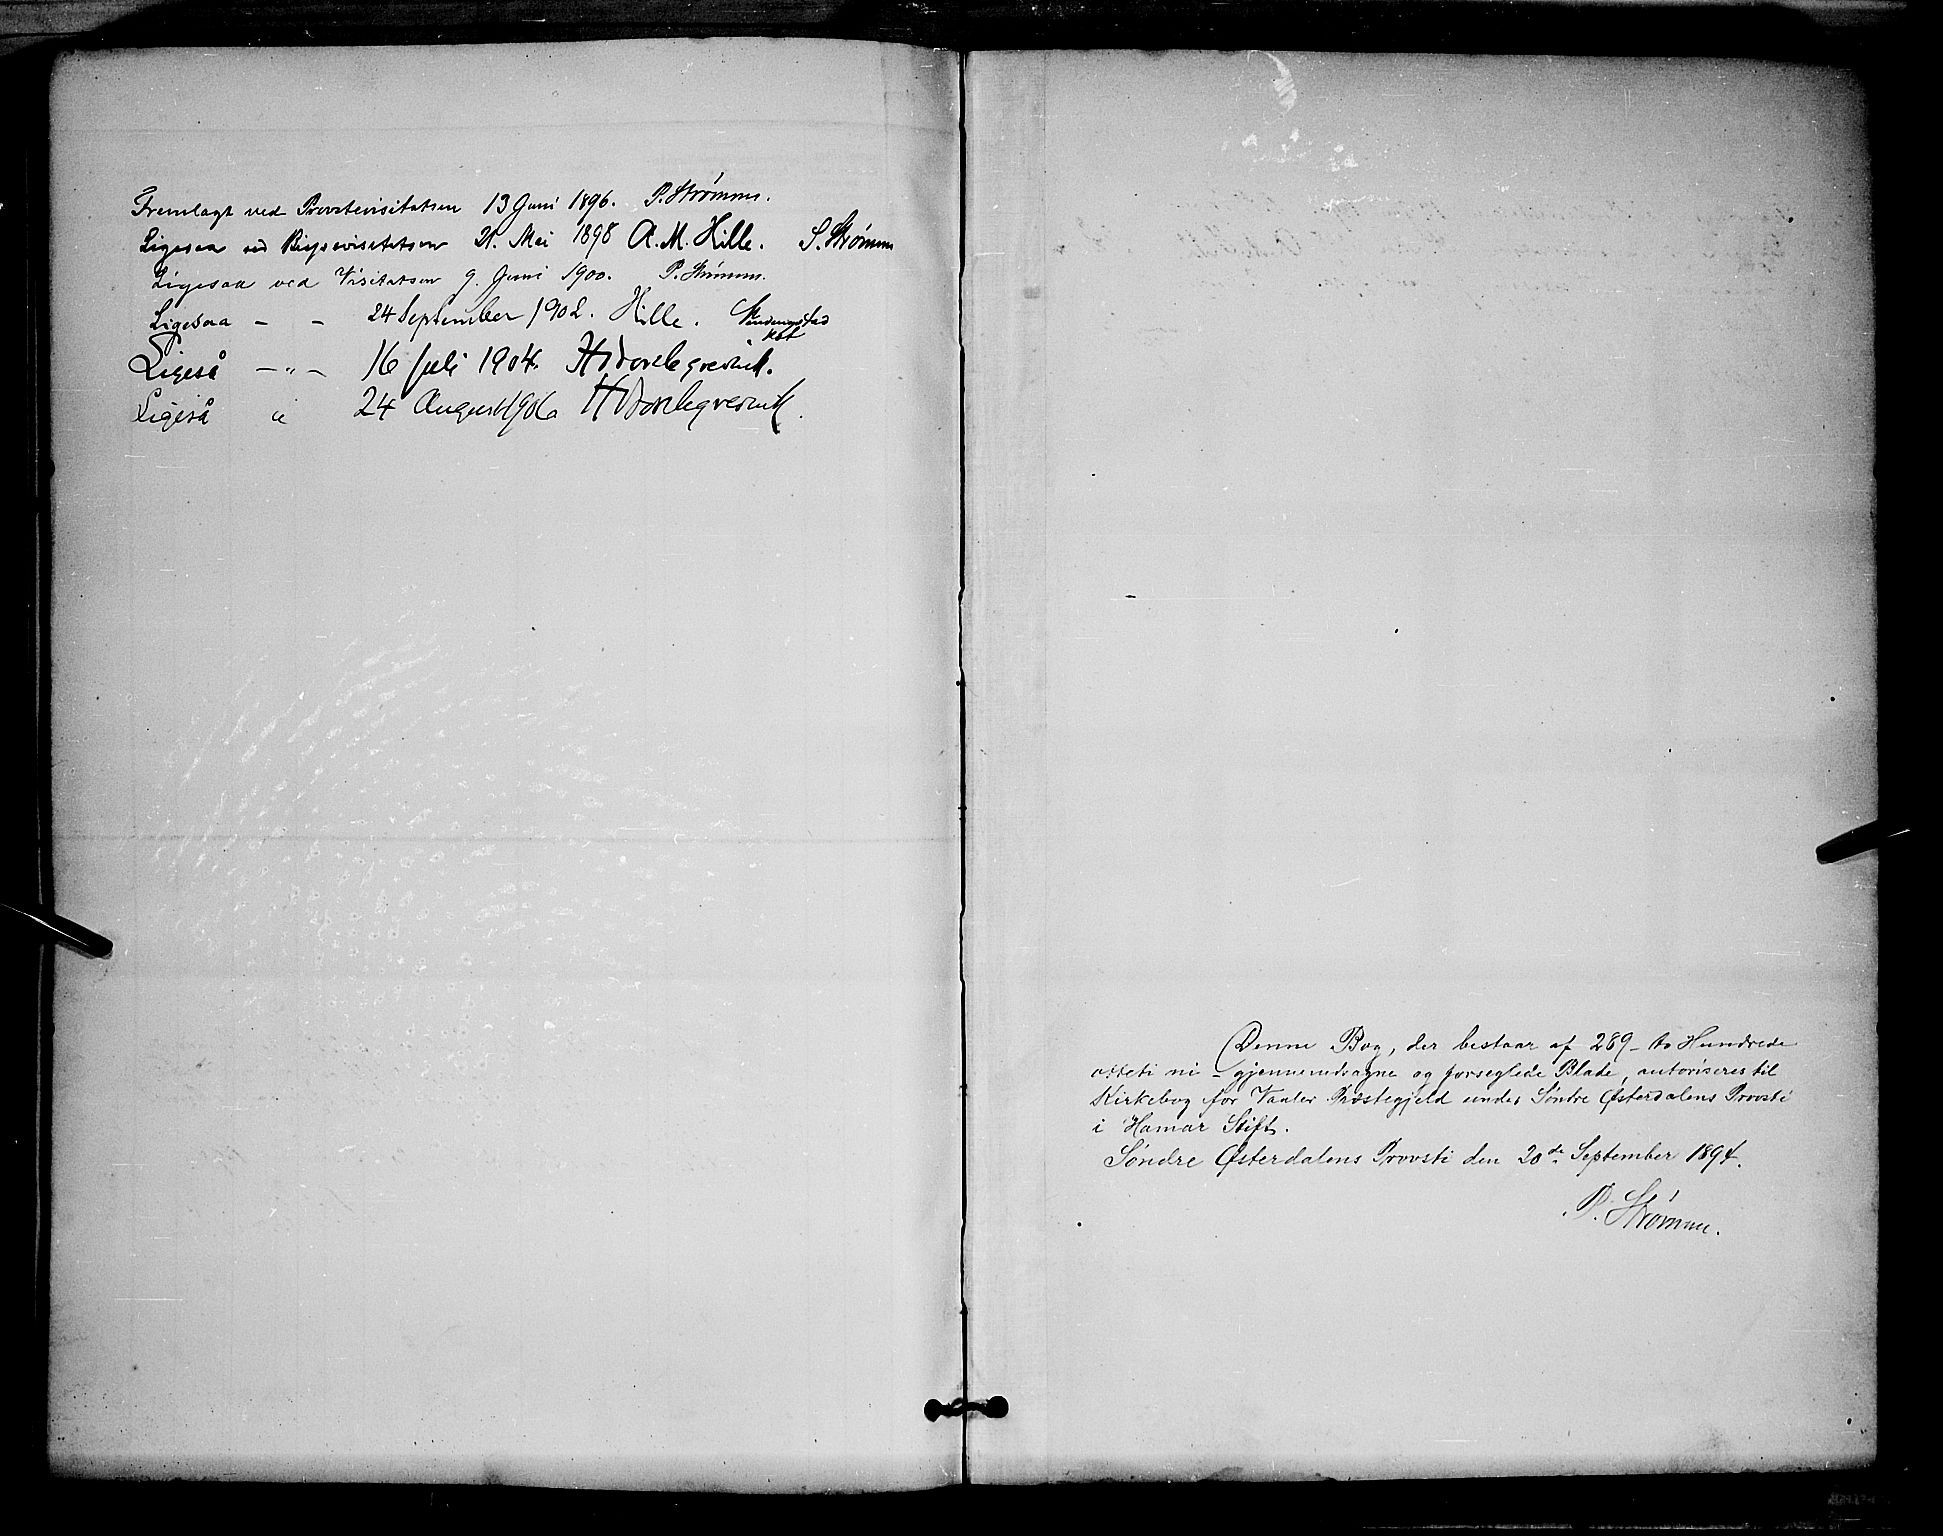 Fremlagt ved Provstevisitatsen 13 Juni 1896. P. Strømme.
Ligesaa ved Bispevisitatsen 21. Mai 1898 A. M. Hille. P. Strømme
Ligesaa ved Visitatsen 9. Juni 1900. P. Strømme.
Ligesaa - - 24 September 1902. Hille.
Ligeså - " - 16 juli 1904.
Ligeså " 24 August 1906
Denne Bog, der bestaar af 289 - to Hundrede
otteti ni - gjennemdragne og forseglede Blade, autoriseres til
Kirkebog for Vaaler Præstegjeld under Søndre Østerdalens Provsti
i Hamar Stift.
Søndre Østerdalens Provsti den 20de September 1894.
P. Strømme.